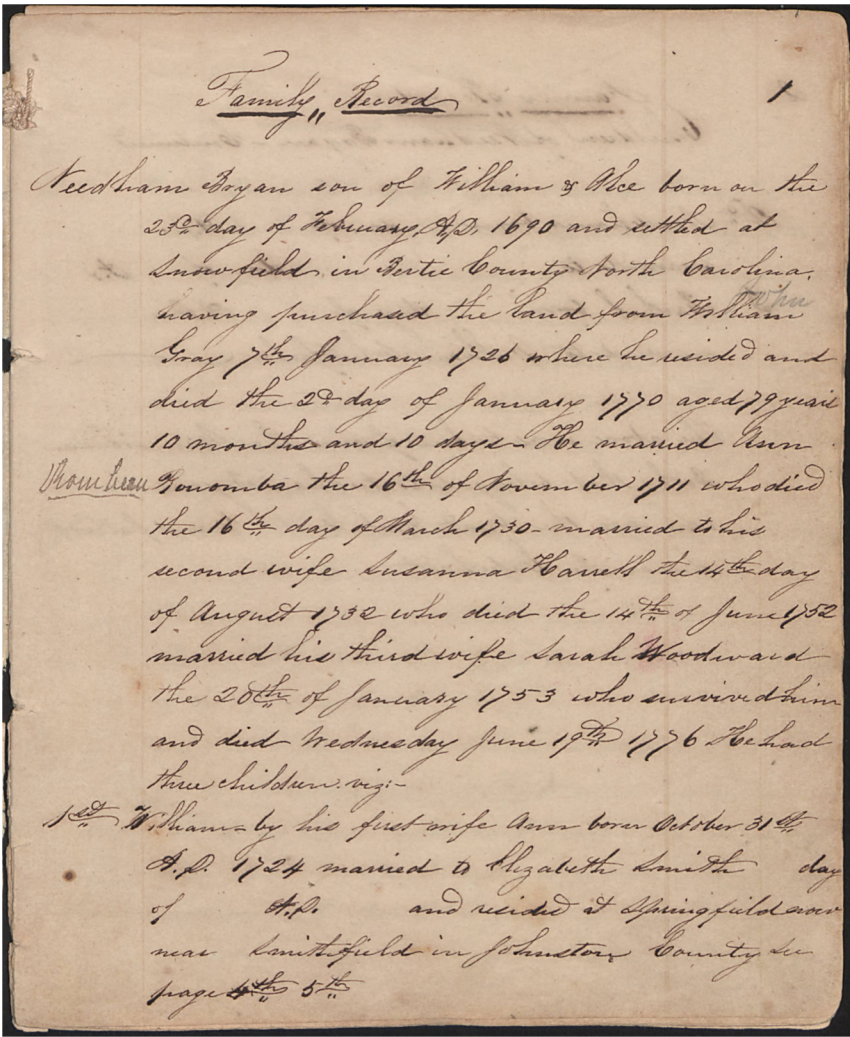 Family Record
1
Needham Bryan son of William & Alce born on the
23d day of February A.D. 1690 and settled at
Snowfield in Bertie County North Carolina,
John
having purchased the land from William
Gray 7th January 1726 where he resided and
died the 2d day of January 1770 aged 79 years
10 months and 10 days - He married Ann
the 16th of November 1711 who died
the 16th day of March 1730 - married to his
second wife Susanna Harrell the 14th day
of August 1732 who died the 14th of June 1752
married his third wife Sarah Woodward
the 20th of January 1753 who survived him
and died Wednesday June 19th 1776 He had
three children viz:-
1st William - by his first wife Ann born October 31st
A.D. 1724 married to Elizabeth Smith day
of A.D. and resided at Springfield now
near Smithfield in Johnston County See
page 4th 5th